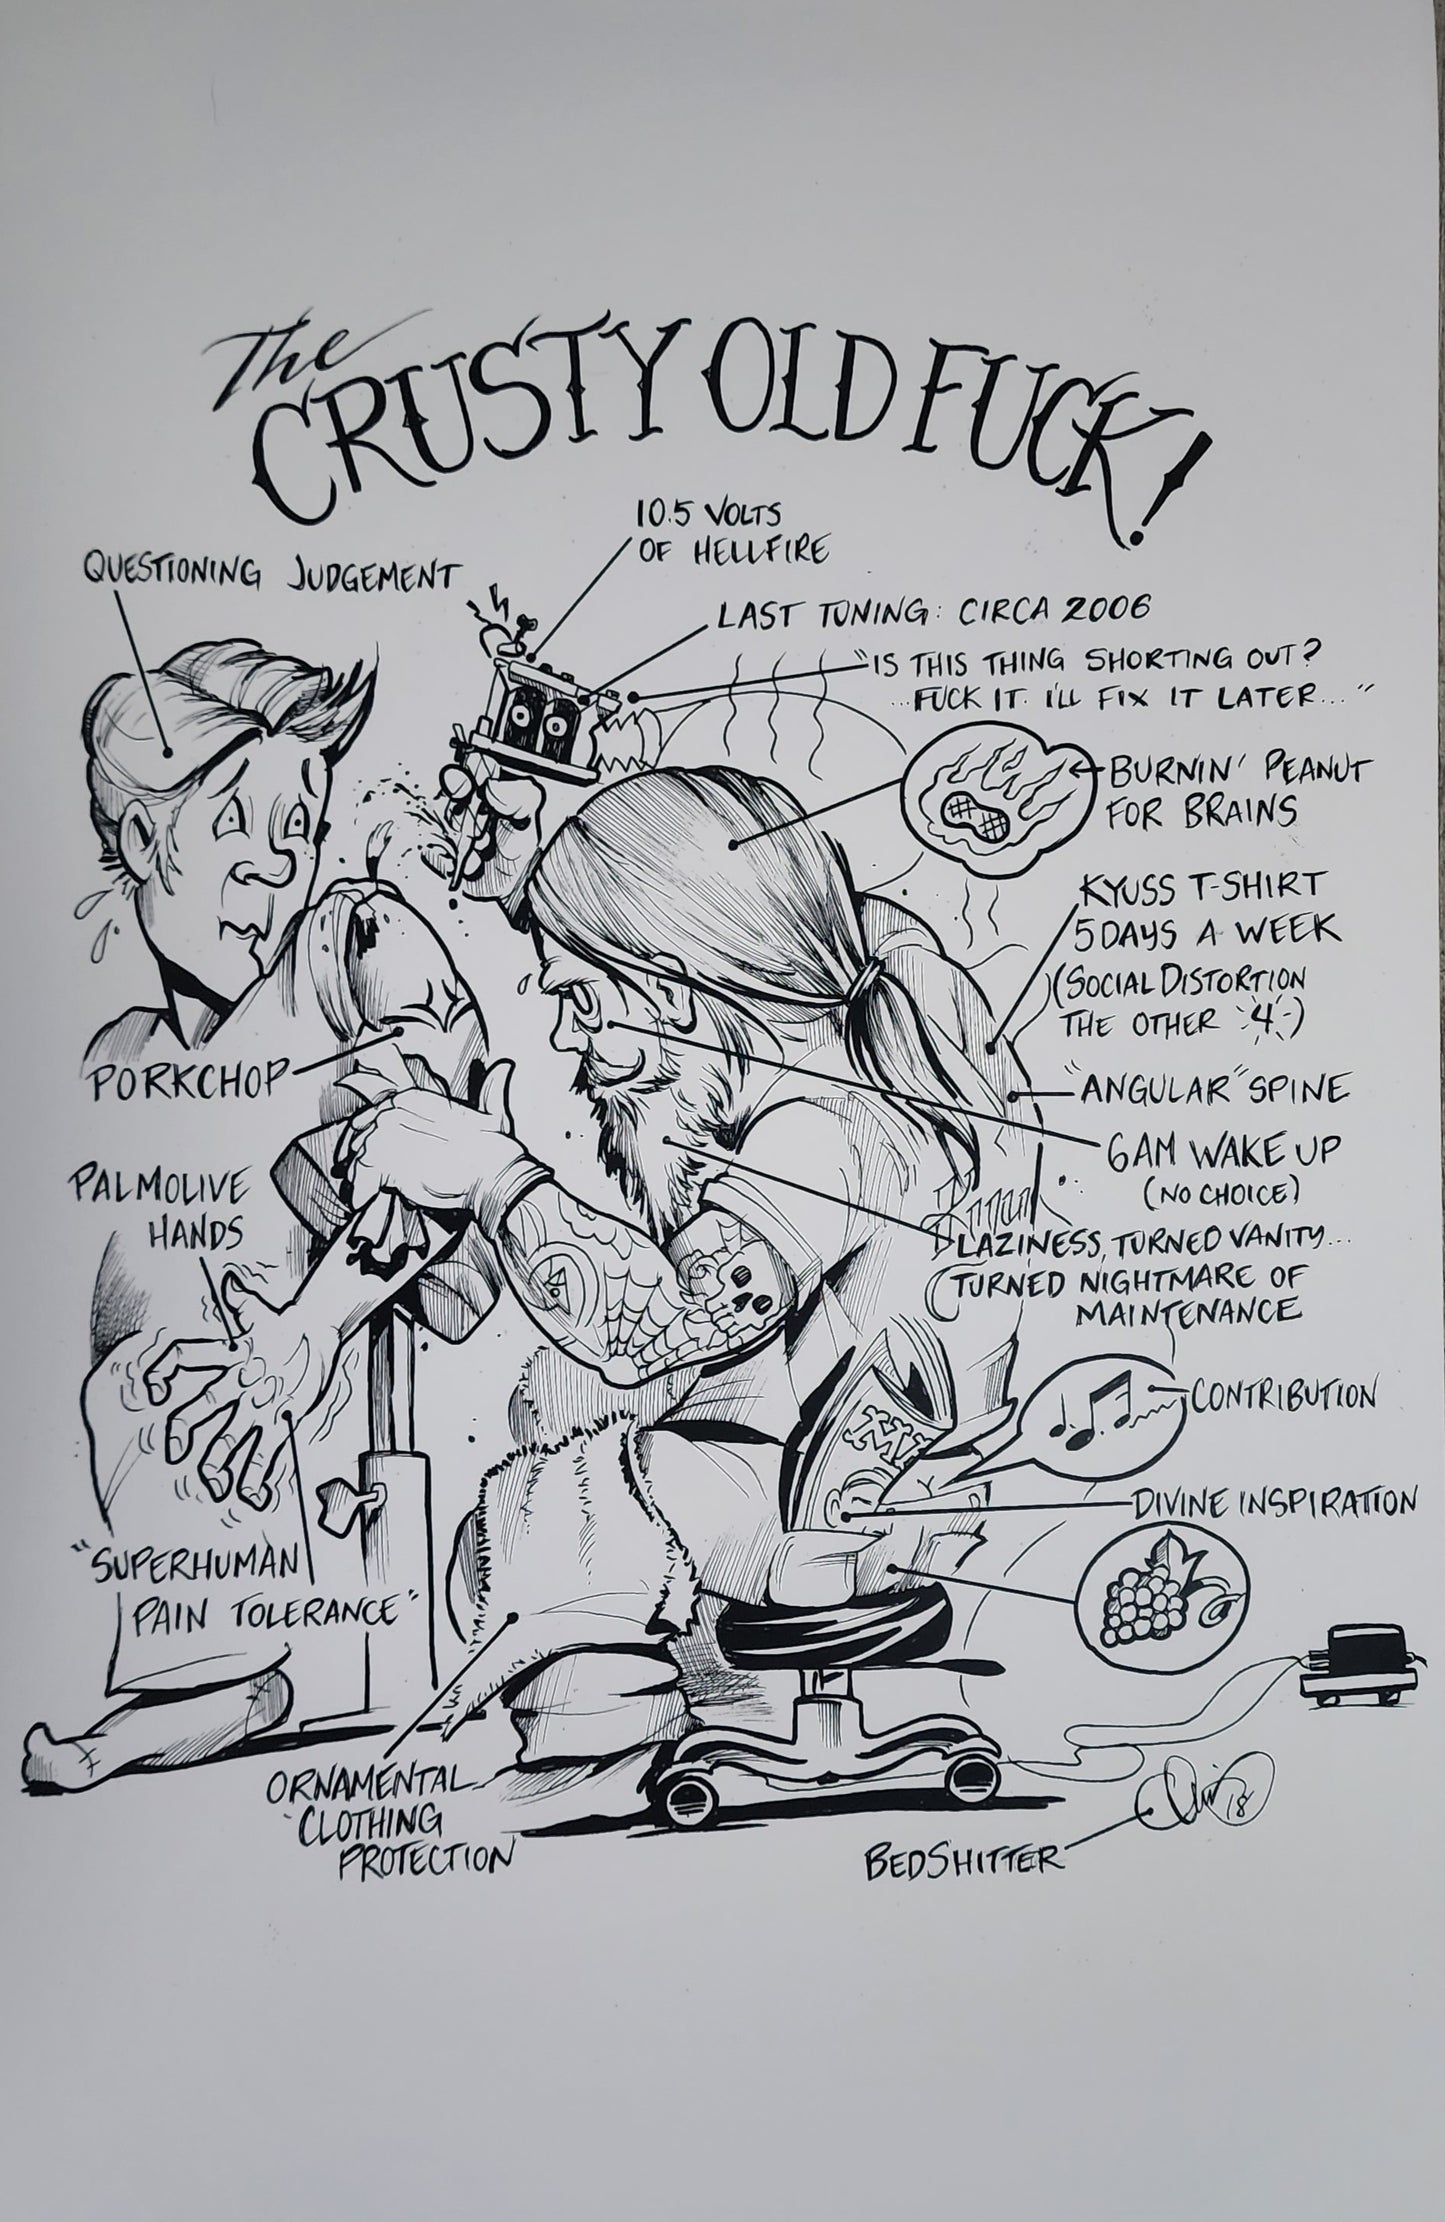 The
CRUSTY OLD FUCK!
10.5 VOLTS
OF HELLFIRE
QUESTIONING JUDGEMENT
LAST TUNING: CIRCA 2006
"IS THIS THING SHORTING OUT?
...FUCK IT. I'LL FIX IT LATER..."
BURNIN' PEANUT
FOR BRAINS
KYUSS T-SHIRT
5 DAYS A WEEK
(SOCIAL DISTORTION
THE OTHER 4)
PORKCHOP
"ANGULAR" SPINE
6AM WAKE UP
(NO CHOICE)
PALMOLIVE
HANDS
LAZINESS, TURNED VANITY...
TURNED NIGHTMARE OF
MAINTENANCE
CONTRIBUTION
DIVINE INSPIRATION
"SUPERHUMAN
PAIN TOLERANCE"
ORNAMENTAL
CLOTHING
PROTECTION
BEDSHITTER
18